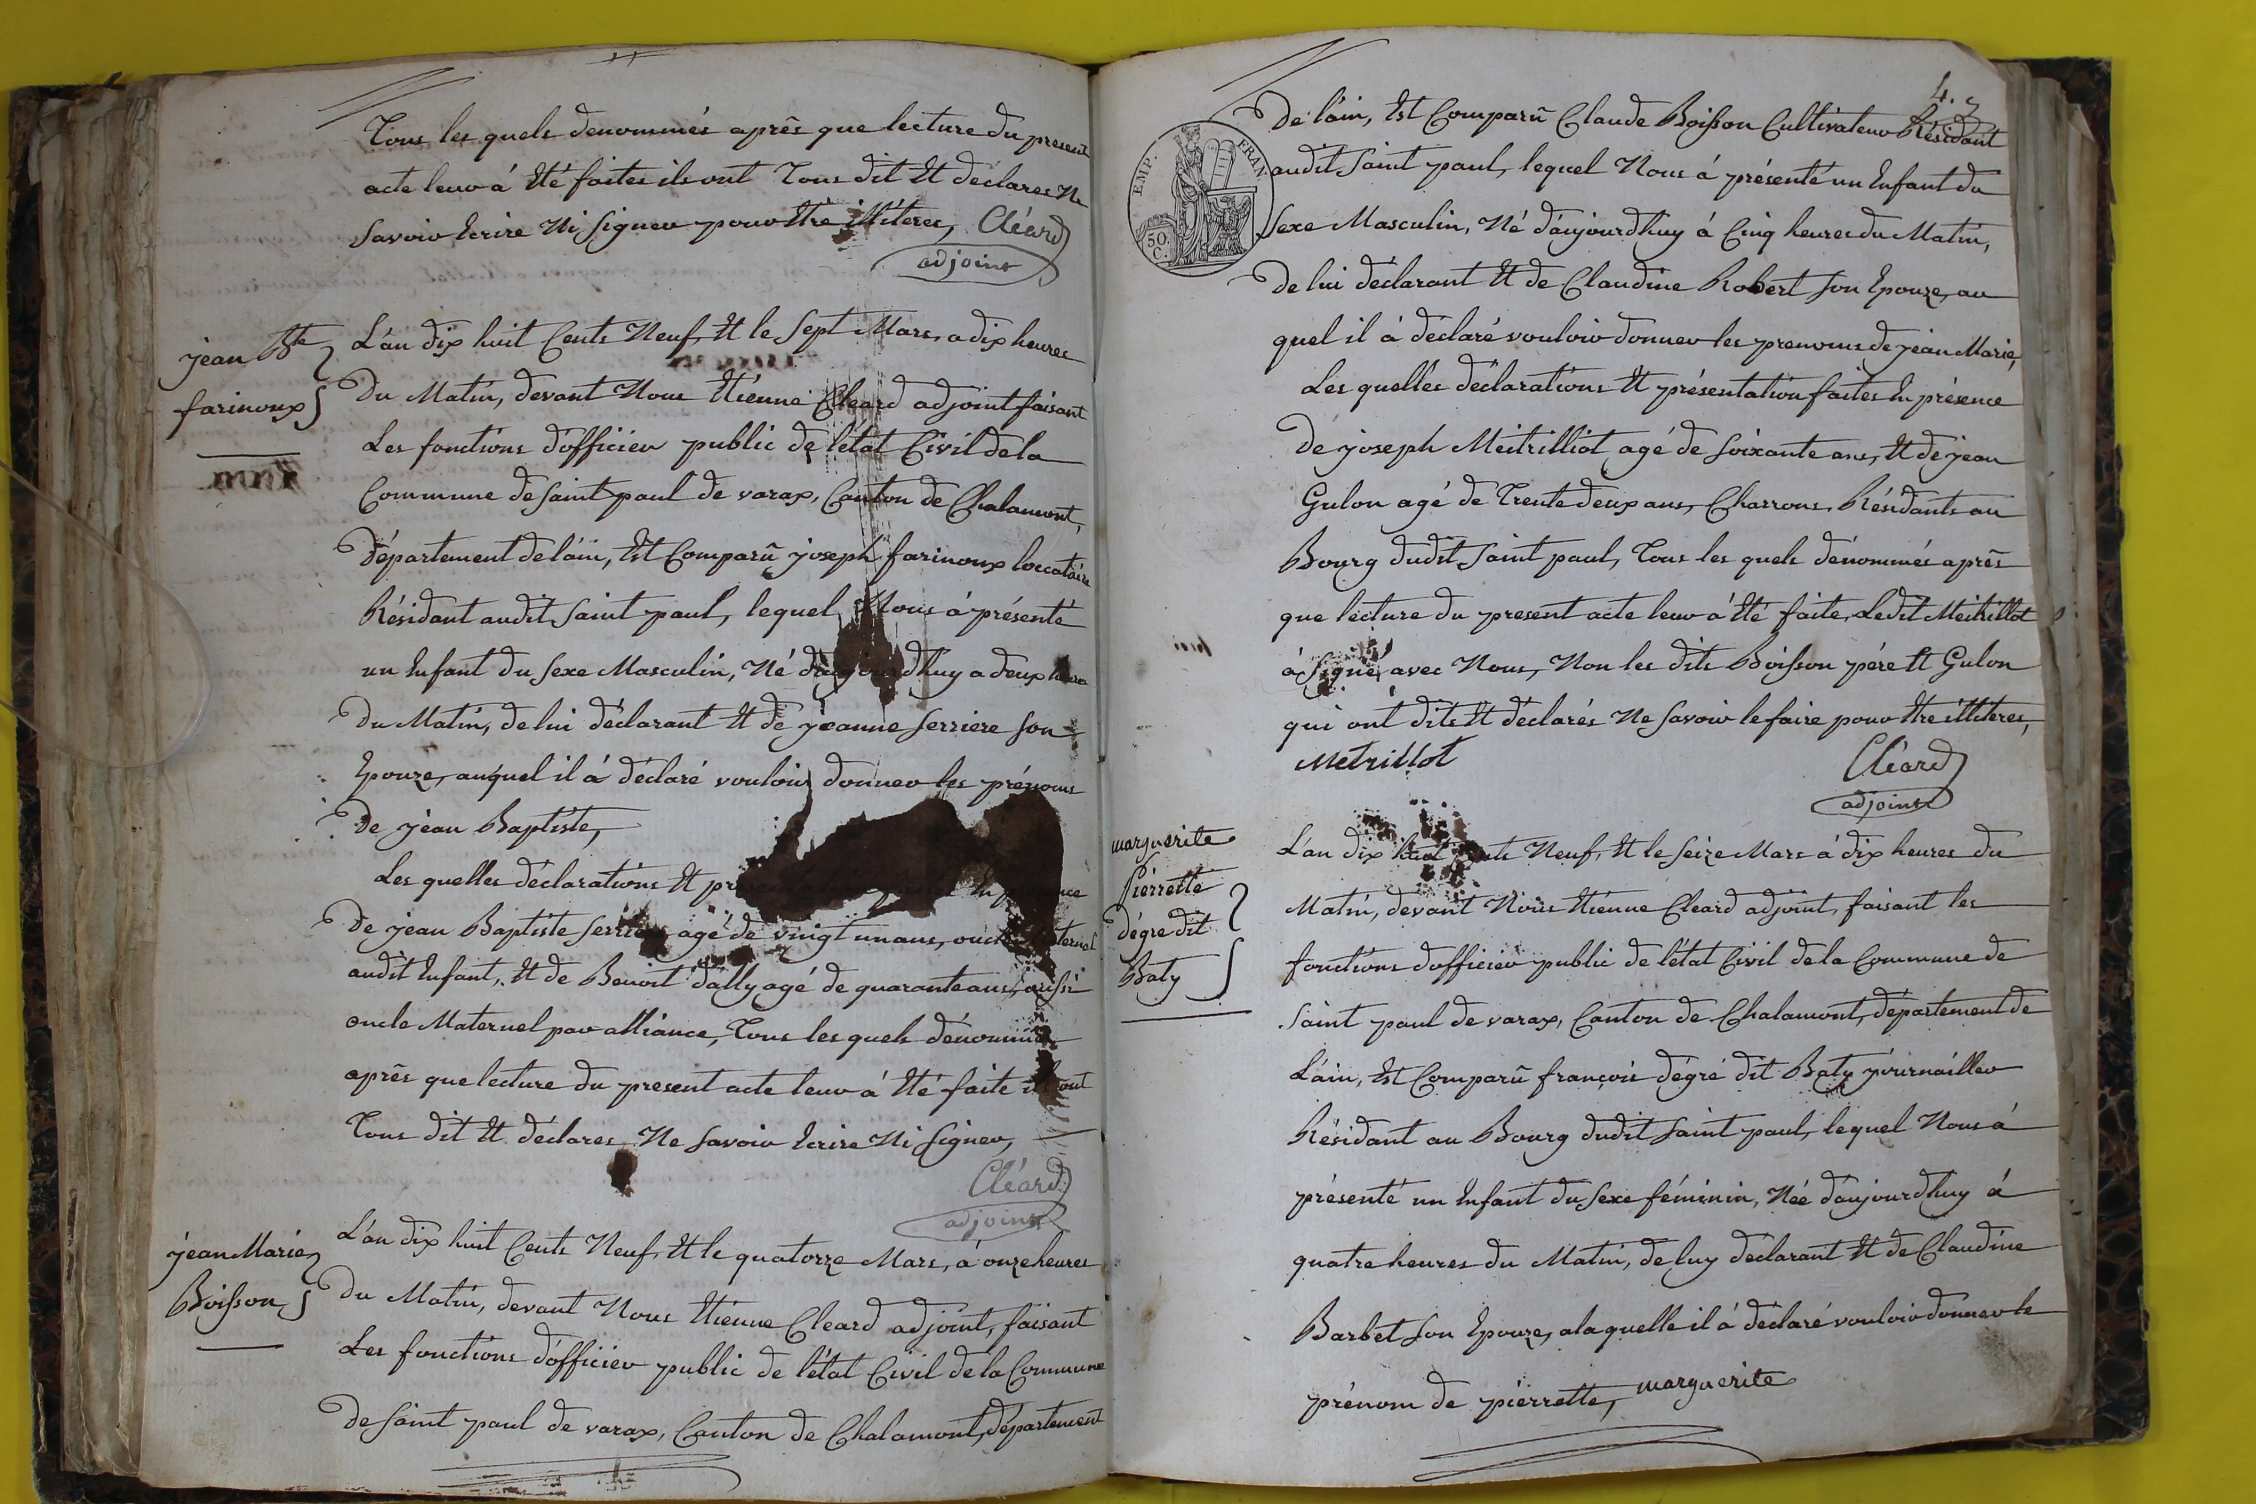 Tous les quels denommés aprês que lecture du present
acte leur á Eté faites ils ont Tous dit Et declares Ne
Savoir Ecrire Ni Signer pour Etre illiteres, Cléard
adjoint
jean Bte
farinoux
L'an dix huit Cents Neuf, Et le Sept Mars, a dix heures
Du Matin, devant Nous Etienne Cleard adjoint faisant
Les fonctions d'officier public de l'état Civil de la
Commune de Saint paul de varax, Canton de Chalamont,
Département de l'áin, Est Comparû joseph farinoux loccatáire
Résidant audit Saint paul, lequel Nous á présenté
un Enfant du Sexe Masculin, Né d'aujourdhuy a deux heures
Du Matin, de lui déclarant Et de jeanne Serriere Son
Epouze, auquel il á déclaré vouloir donner les prénoms
de jean Baptiste,
Les quelles déclarations Et En présence
De jean Baptiste Serriere agé de vingt un ans, oncle Maternel
audit Enfant, Et de Benoit dally agé de quarante ans, aussi
oncle Maternel par alliance, Tous les quels dénommés
aprês que lecture du present acte leur á Eté faite ils ont
Tous dit Et déclares Ne Savoir Ecrire Ni Signer,
Cléard
adjoint
jean Marie
Boisson
L'an dix huit Cents Neuf, Et le quatorze Mars, á onze heures
Du Matin, devant Nous Etienne Cleard adjoint, faisant
Les fonctions d'officier public de l'état Civil de la Commune
De Saint paul de varax, Canton de Chalamont, département
4.
EMP. FRAN.
50.
C.
De l'áin, Est Comparû Claude Boisson Cultivateur Résidant
audit Saint paul, lequel Nous á présenté un Enfant du
Sexe Masculin, Né d'aujourdhuy á Cinq heures du Matin,
De lui déclarant Et de Claudine Robert Son Epouze, au
quel il á déclaré vouloir donner les prenoms de jean Marie,
Les quelles déclarations Et présentation faites En présence
De joseph Meitrilliot agé de Soixante ans, Et de jean
Gulon agé de Trente deux ans, Charrons, Résidants au
Bourg dudit Saint paul, Tous les quels dénommés aprês
que lecture du present acte leur á Eté faite, Ledit Meitrillot
á Signé avec Nous, Non les dits Boisson pére Et Gulon
qui ont dits Et déclarés Ne Savoir le faire pour Etre illiteres,
Metrillot
Cléard
adjoint
marguerite
Pierrette
dégre dit
Baty
L'an dix huit Cents Neuf, Et le Seize Mars á dix heures du
Matin, devant Nous Etienne Cleard adjoint, faisant les
fonctions d'officier public de l'état Civil de la Commune de
Saint paul de varax, Canton de Chalamont, département de
L'ain, Est Comparû françois dégré dit Baty journaillier
Résidant au Bourg dudit Saint paul, lequel Nous á
présenté un Enfant du Sexe féminin, Née d'aujourdhuy á
quatre heures du Matin, de luy déclarant Et de Claudine
Barbet Son Epouze, a laquelle il á déclaré vouloir donner le
prénom de pierrette, marguerite